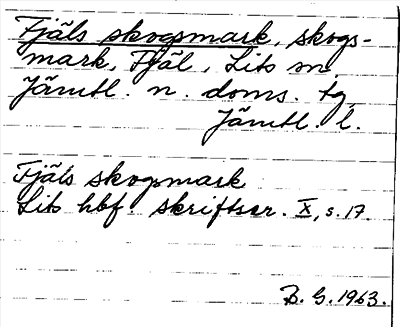 Fjäls skogsmark, skogs-
mark, Fjäl, Lits sn,
Jämtl. n. doms. tg,
Jämtl. l.
Fjäls skogsmark
Lits hbf. skriftser. X, s. 17.
B. G. 1963.